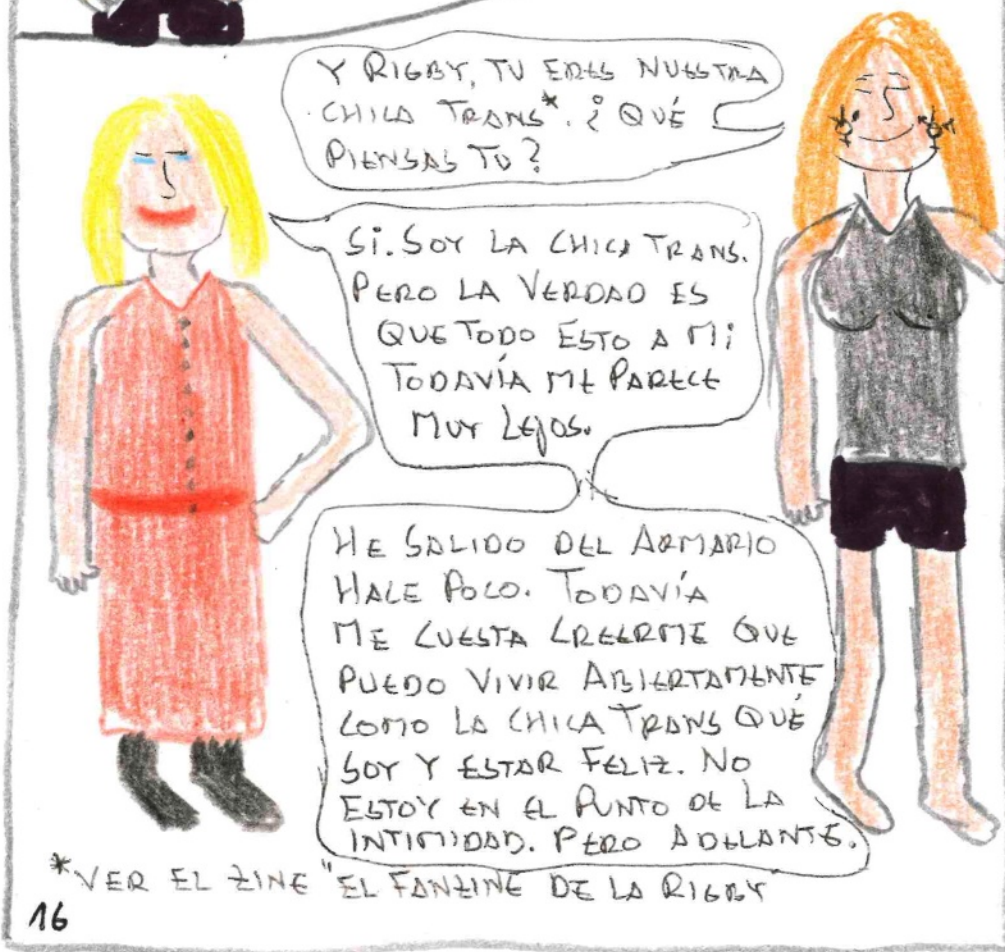 Y RIGBY, TU ERES NUESTRA
CHICA TRANS*. ¿QUÉ
PIENSAS TU?
SÍ. SOY LA CHICA TRANS.
PERO LA VERDAD ES
QUE TODO ESTO A MÍ
TODAVÍA ME PARECE
MUY LEJOS.
HE SALIDO DEL ARMARIO
HACE POCO. TODAVÍA
ME CUESTA CREERME QUE
PUEDO VIVIR ABIERTAMENTE
COMO LA CHICA TRANS QUÉ
SOY Y ESTAR FELIZ. NO
ESTOY EN EL PUNTO DE LA
INTIMIDAD. PERO ADELANTE.
*VER EL ZINE "EL FANZINE DE LA RIGBY"
16